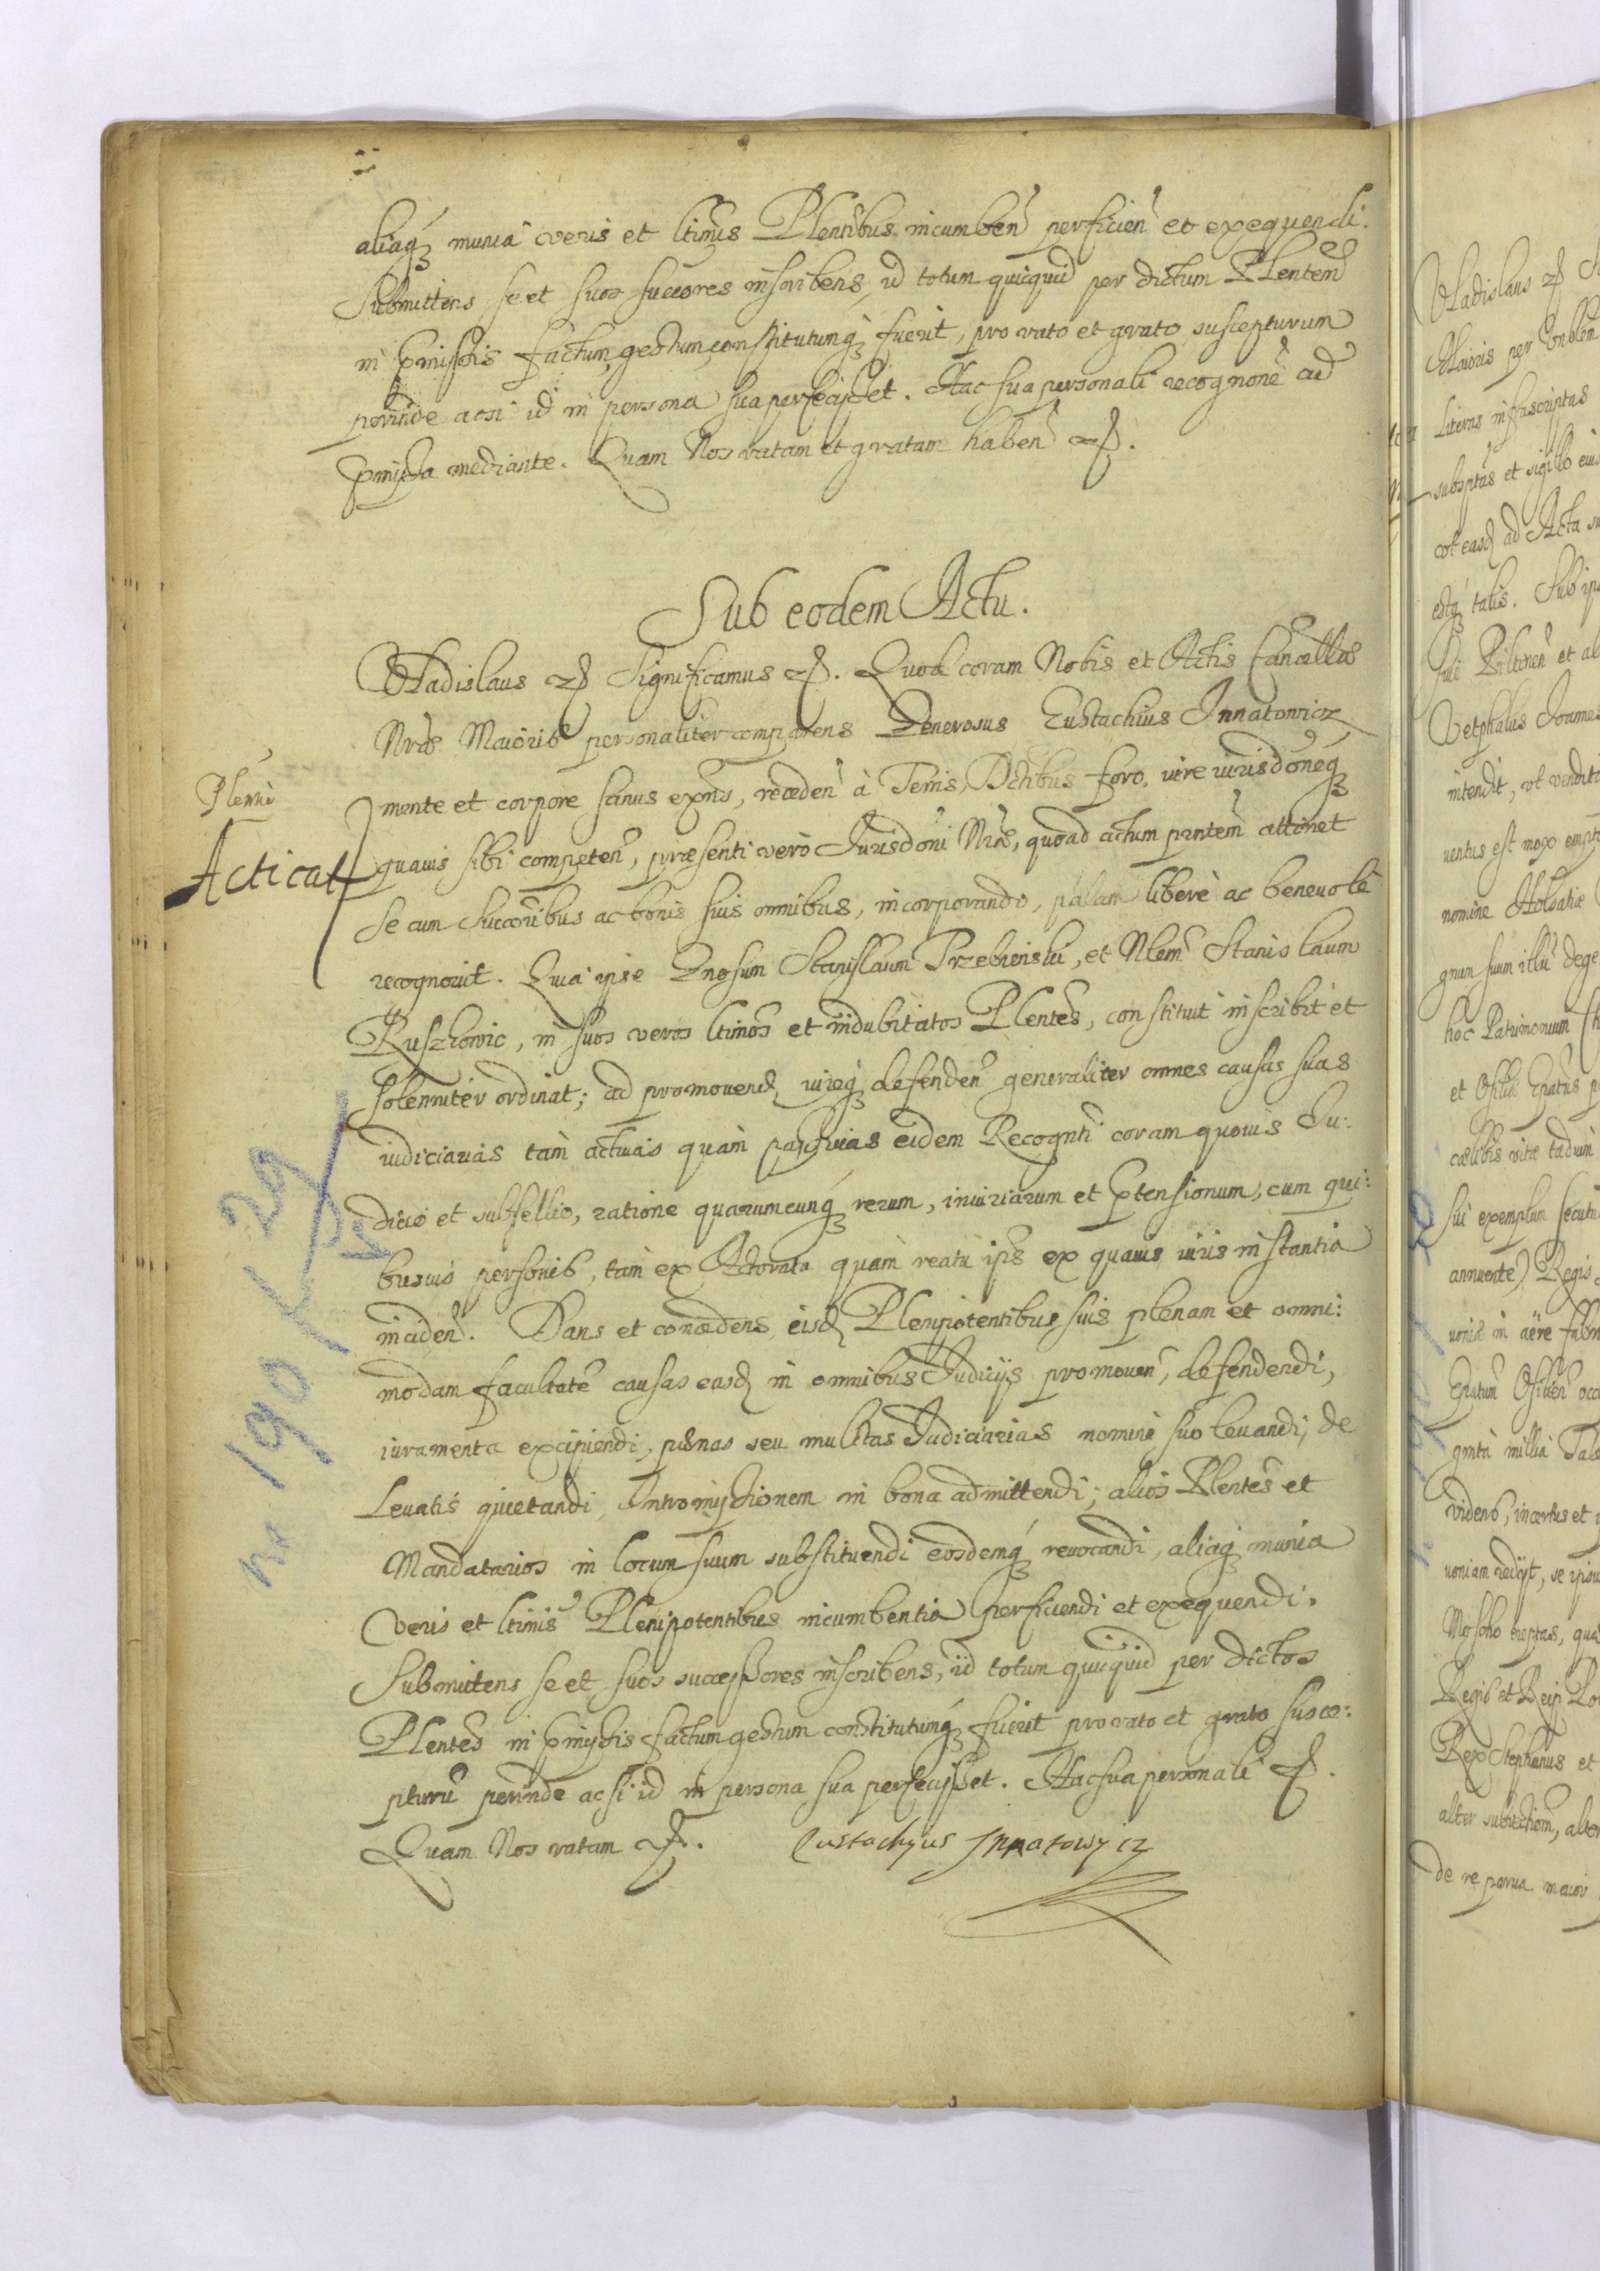 aliaq́ munia veris et ltimis Plentibus incumben perficien et exequendi.
Submittens se et suos succores inscribens, id totum quicquid per dictum Plentem
in pmissis factum, gestum, constitutumq́ fuerit, pro rato et grato suscepturum
perinde acsi id in persona sua perfecisset. Hac sua personali recognone ad
pmissa mediante. Quam Nos ratam et gratam haben etc.
Sub eodem Actu.
Vladislaus etc Significamus etc. Quod coram Nobis et Actis Cancellae
Nrae Maioris personaliter comparens Generosus Eustachius Innatowicz
Plenia
mente et corpore sanus expns, receden à Terris, Dctibus foro, iure iurisdoneq́
Acticat
quauis sibi competen, praesenti verò Jurisdoni Nrae, quoad actum pntem attinet
se cum succoribus ac bonis suis omnibus, incorporando, palam liberè ac beneuolè
recognouit. Quia ipse Gnosum Stanislaum Trzebienski, et Nlem Stanislaum
Ruszkowic, in suos veros ltimos et indubitatos Plentes, constituit inscribit et
solenniter ordinat; ad promouend, iureq́ defenden generaliter omnes causas suas
iudiciarias tam actiuas quàm passiuas eidem Recognti coram quouis Ju:
dicio et subsellio, ratione quarumcunq́ rerum, iniuriarum et ptensionum, cum qui:
busuis personis, tàm ex Actoratu quàm reatu ips ex quauis iuris instantia
inciden. Dans et concedens eisd Plenipotentibus suis plenam et omni:
modam facultate causas easd in omnibus Judicijs promouen, defendendi,
iuramenta excipiendi, paenas seu mulctas Judiciarias nomine suo leuandi, de
Leuatis quietandi, Intromissionem in bona admittendi; alios Plentes et
Mandatarios in locum suum substituendi eosdemq́ reuocandi, aliaq́ munia
veris et ltimis Plenipotentibus incumbentia perficiendi et exequendi.
Submittens se et suos successores inscribens, id totum quicquid per dictos
Plentes in pmissis factum gestum constitutumq́ fuerit pro rato et grato susce:
pturu perinde acsi id in persona sua perfecisset. Hac sua personali etc.
Quam Nos ratam etc. Eustachyus Innatowycz
no 190 f 29
Vladislaus etc
Maioris per
Literas infrascriptas
subsptas et sigillo eius
vt easd ad Acta
estq́ talis. Sub
Piltinen et
Vetphalus Joannes
intendit, vt
uentus est mox
nomine Holsatiae
gnum suum
hoc Patrimonium
et
caelibis vitae tadium
sui exemplum secutu
annuente) Regis
in aëre
occ
ginta millia Tale
videns, incertus et
uoniam redijt, se
Moscho
Regis et Reip
Rex Stephanus et
alter subiectiom, alter
de re parua maior